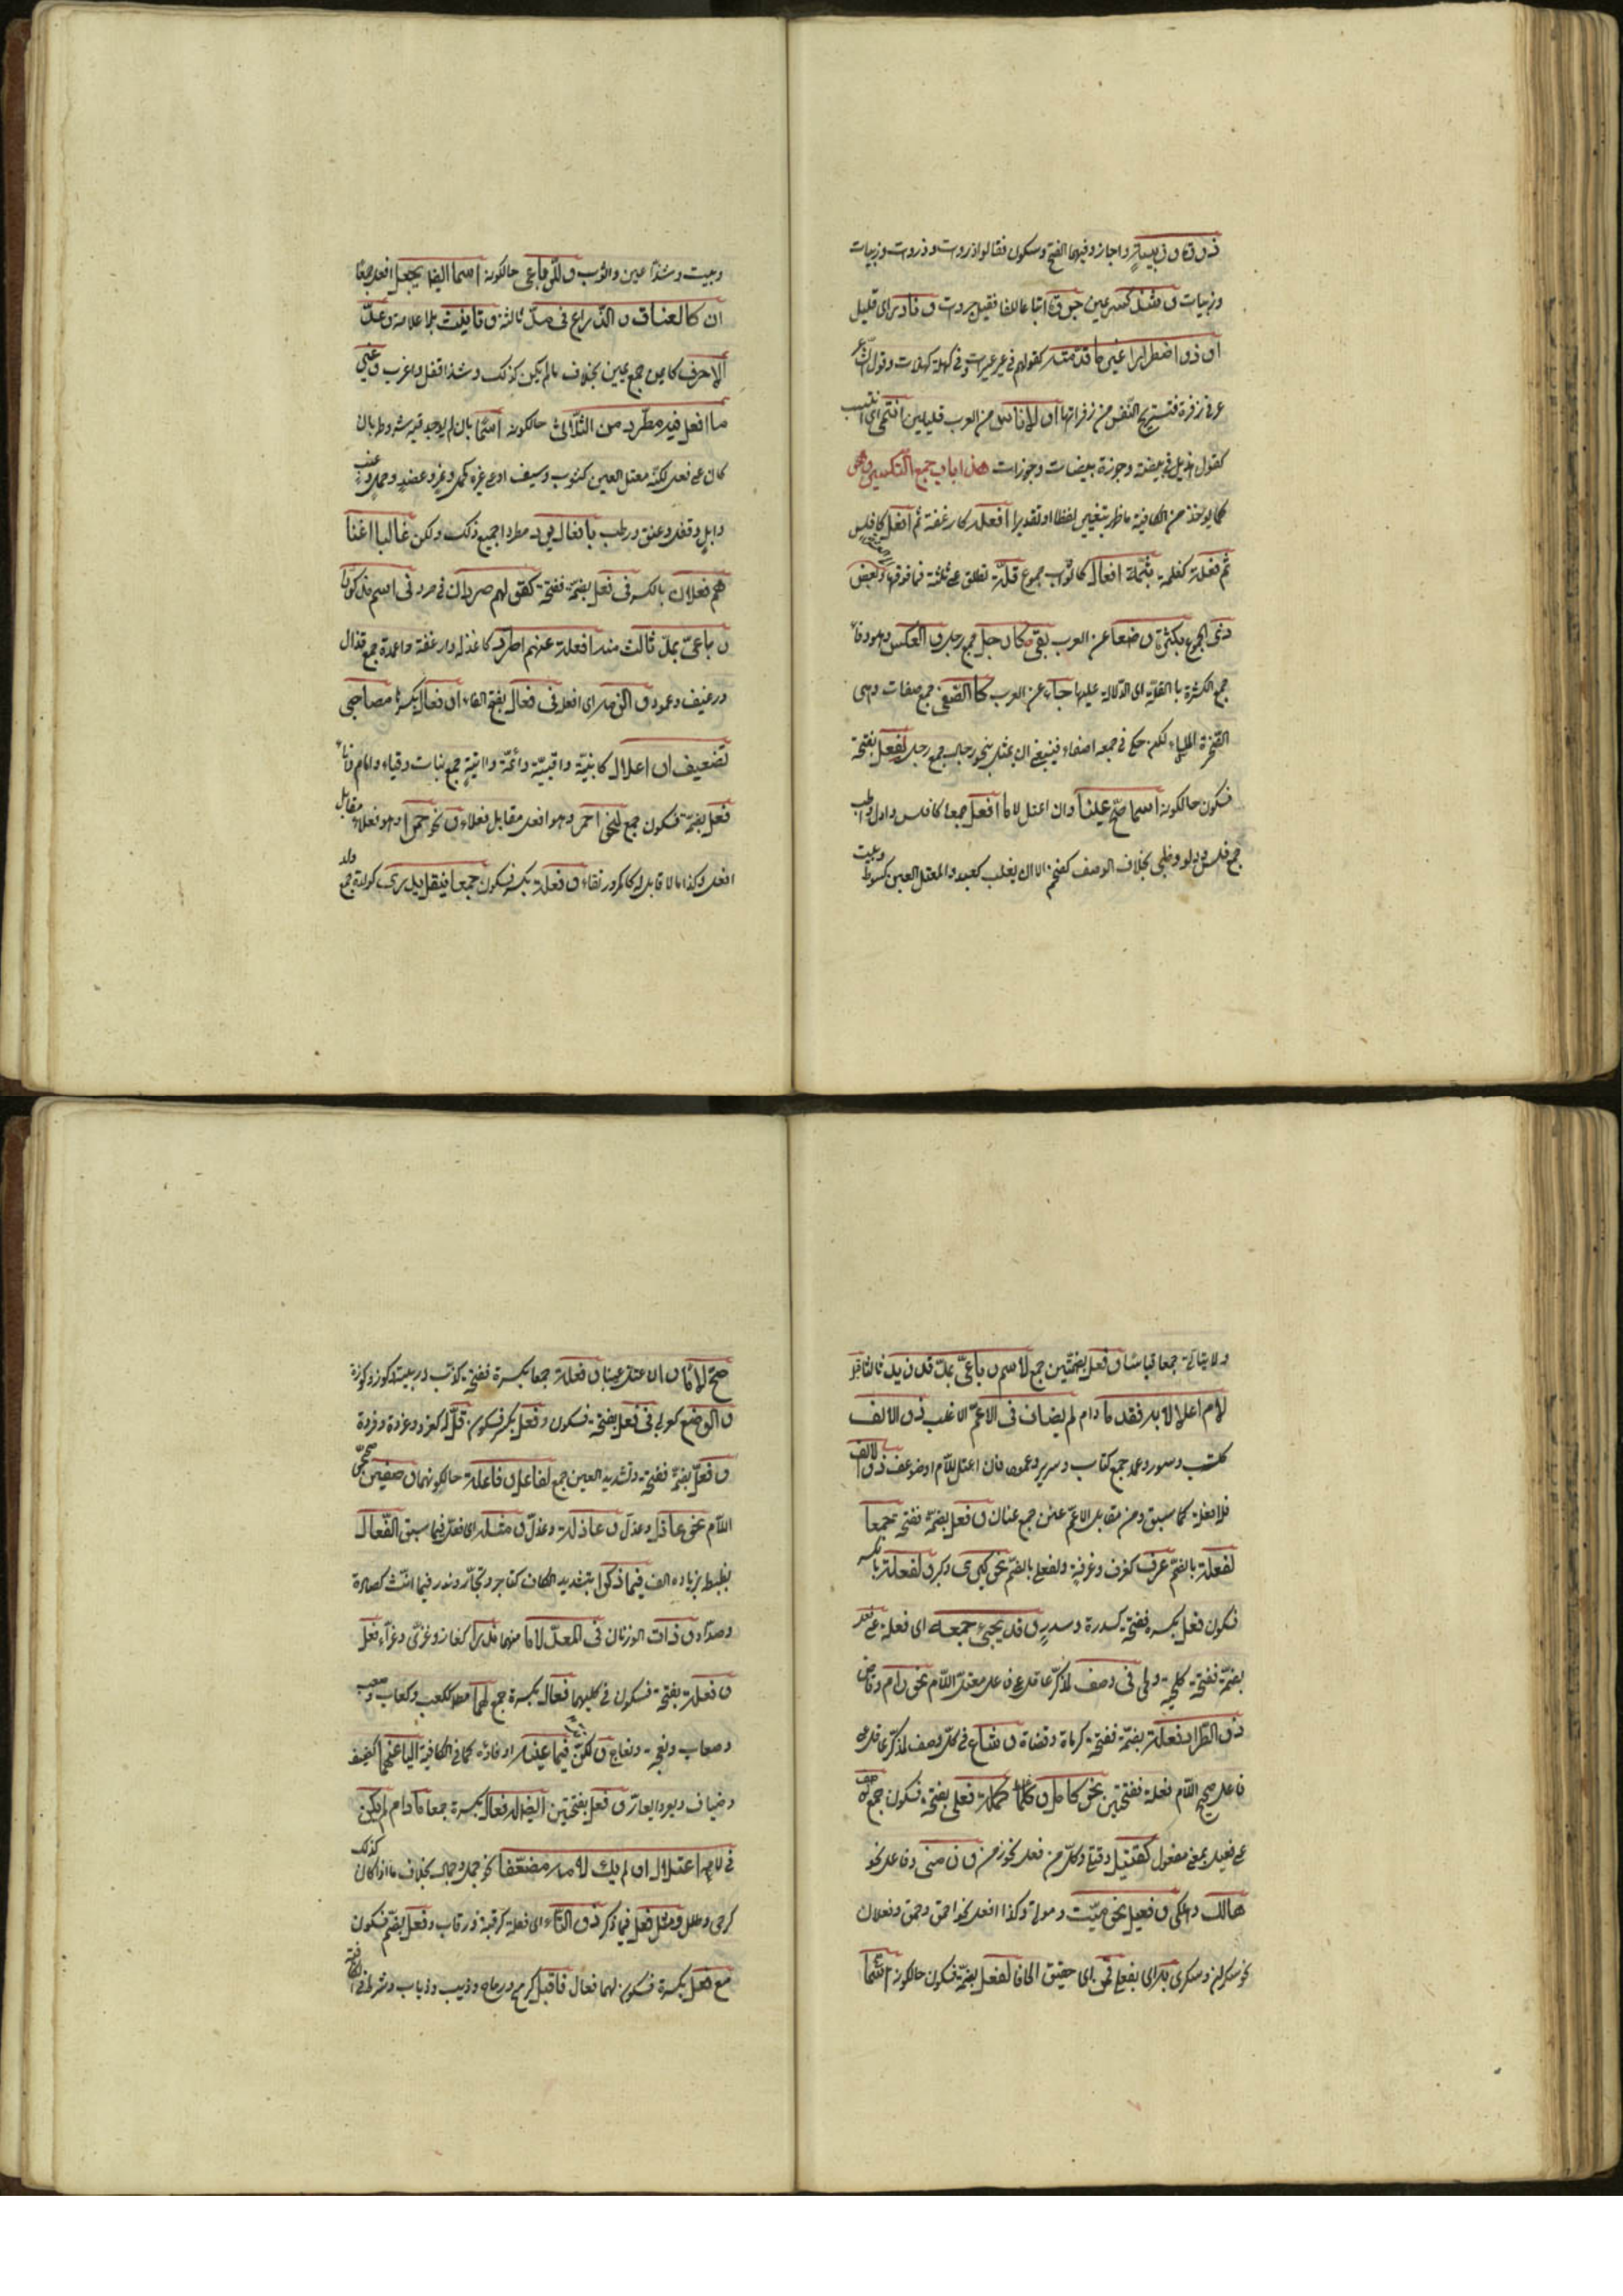 ذروة وزبية واجازوا فيهما الفتح وسكون فقالوا ذروت وذروت وزبيات
وزبيات وشذ كسر عين جروة اتباعا للفا فقيل جروت ونادر اى قليل
او ذو اضطرار غير ما قدمته كقولهم فى عير عيرات وفى كهلة كهلات وقول الشاعر
فتستريح النفس من زفراتها او لاناس من العرب قليلين انتمى اى انتسب
كقول هذيل فى بيضة وجوزة بيضات وجوزات هذا باب جمع التكسير وهو
كما يوخذ من الكافية ما ظهر بتغيير لفظا او تقديرا افعلة كارغفة ثم افعل كافلس
ثم فعلة كغلمة ثمت افعال كاثواب جموع قلة تطلق على ثلثة فما فوقها وبعض
ذى الجموع بكثرة وضعا عن العرب يفى كارجل جمع رجل والعكس وهو وفاء
جمع الكثرة بالقلة اى الدلالة عليها جاء عن العرب كالصفى جمع صفات وهى
الصخرة الملساء لكن حكى فى جمعه اصفاء فينبغى ان يمثل بنحو رجال جمع رجل لفعل بفتحة
فسكون حالكونه اسما صح عينا وان اعتل لاما افعل جمعا كافلس وادل واظب
جمع فلس ودلو وظبى بخلاف الوصف كضخم الا ان يغلب كعبد والمعتل العين كسوط
وبيت
وبيت وشذ اعين واثوب وللرباعى حالكونه اسما ايضا يجعل افعل جمعا
ان كان كالعناق والذراع فى مد ثالثه وتانيث بلا علامة وعد
الاحرف كايمن جمع يمين بخلاف ما لم يكن كذلك وشذ اقفل واغرب وغير
ما افعل فيه مطرد من الثلاثى حالكونه اسما بان لم يوجد فيه شروطه بان
كان على فعل لكنه معتل العين كثوب وسيف او على غيره كجمل ونمر وعضد وحمل وعنب
وابل وقفل وعنق ورطب بافعال يرد مطردا جميع ذلك ولكن غالبا اغنا
هم فعلان بالكسر فى فعل بضمة ففتحة كقولهم صردان فى صرد فى اسم مذكر
رباعى بمد ثالث منه افعلة عنهم اطرد كاقذلة وارغفة واعمدة جمع قذال
ورغيف وعمود والزمه اى افعلة فى فعال بفتح الفاء او فعال بكسرها مصاحبى
تضعيف او اعلال كابتّة واقبية وائمة وانية جمع بتات وقباء وامام واناء
فعل بضمة فسكون جمع لنحو احمر وهو افعل مقابل فعلاء ونحو حمرا وهو فعلاء مقابل
افعل وكذا ما لا مقابل له كاكمر ورتقاء وفعلة بكسر فسكون جمعا بنقل يدرى كولدة جمع
ولد
ولا يتاتى جمعا قياسا وفعل بضمتين جمع لاسم رباعى بمد قد زيد ثالثا قبل
لام اعلالا به فقد ما دام لم يضاف فى الاعم الاغلب ذو الالف
ككتب وسرر وعمد جمع كتاب وسرير وعمود فان اعتل اللام او ضوعف ذو الالف
فلافعلة كما سبق ومن مقابل الاعم عنن جمع عنان وفعل بضمة ففتحة جمعا
لفعلة بالضم عرف كغرف وغرفة ولفعلى بالضم نحو كبرى وكبر ولفعلة بالكسر
فسكون فعل بكسرة ففتحة كسدرة وسدر وقد يجىء جمعه اى فعلة على فعل
بضمة ففتحة كلحية ولحى فى وصف لمذكر عاقل على فاعل معتل اللام نحو رام وقاض
ذو اطراد فعلة بضمة ففتحة كرماة وقضاة وشاع فى كل وصف لمذكر عاقل على
فاعل صحيح اللام فعلة بفتحتين نحو كامل وكملة فعلى بفتحة فسكون جمع لوصف
على فعيل بمعنى مفعول كقتيل وقتلى وكل من فعل نحو زمن وزمنى وفاعل نحو
هالك وهلكى وفعيل نحو ميت وموتى وكذا افعل نحو احمق وحمقى وفعلان
نحو سكران وسكرى به اى بفعلى قمن اى حقيق الحاقا لفعل بضمة فسكون حالكونه اسما
صح لاما وان اعتل عينا فعلة جمعا بكسرة ففتحة كدب ودببة وكوز وكوزة
والوضع كواو فى فعل بفتحة فسكون وفعل بكسر فسكون قلله كغرد وغردة وقردة
وفعل بضمة ففتحة وتشديد العين جمع لفاعل وفاعلة حالكونهما وصفين صحيحى
اللام نحو عاذل وعذل وعاذلة وعذل ومثله اى فعل فيما سبق الفعال
بضبطه بزيادة الف فيما ذكرا بتشديد الكاف كتاجر وتجار وندر فيما انث كصادة
وصداد وذان الوزنان فى المعل لاما منهما ندرا كغاز وغزى وغزاء فعل
وفعلة بفتحة فسكون فى كليهما فعال بكسرة جمع لهما مطلقا ككعب وكعاب وصعب
وصعاب ونعجة ونعاج ولكن قل فيما عينه او فاؤه كما فى الكافية اليا عنهما كضيف
وضياف ويعر ويعار وفعل بفتحتين ايضا له فعال بكسرة جمعا ما دام لم يكن
فى لامه اعتلال او لم يك لامه مضعفا نحو جمل وجمال بخلاف ما اذا كان كذلك
كرحى وطلل ومثل فعل فيما ذكر ذو التاء اى فعلة كرقبة ورقاب وفعل بضم فسكون
مع فعل بكسرة فسكون لهما فعال فاقبل كرمح ورماح وذيب وذياب وشرط فى